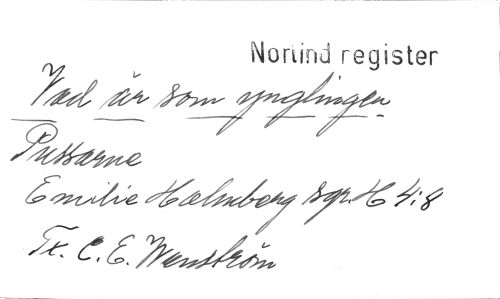 Norlind register
Vad är som ynglingen
Pussarne
Emilie Holmberg sgr. H 4:8
Tx. C. E. Wenström